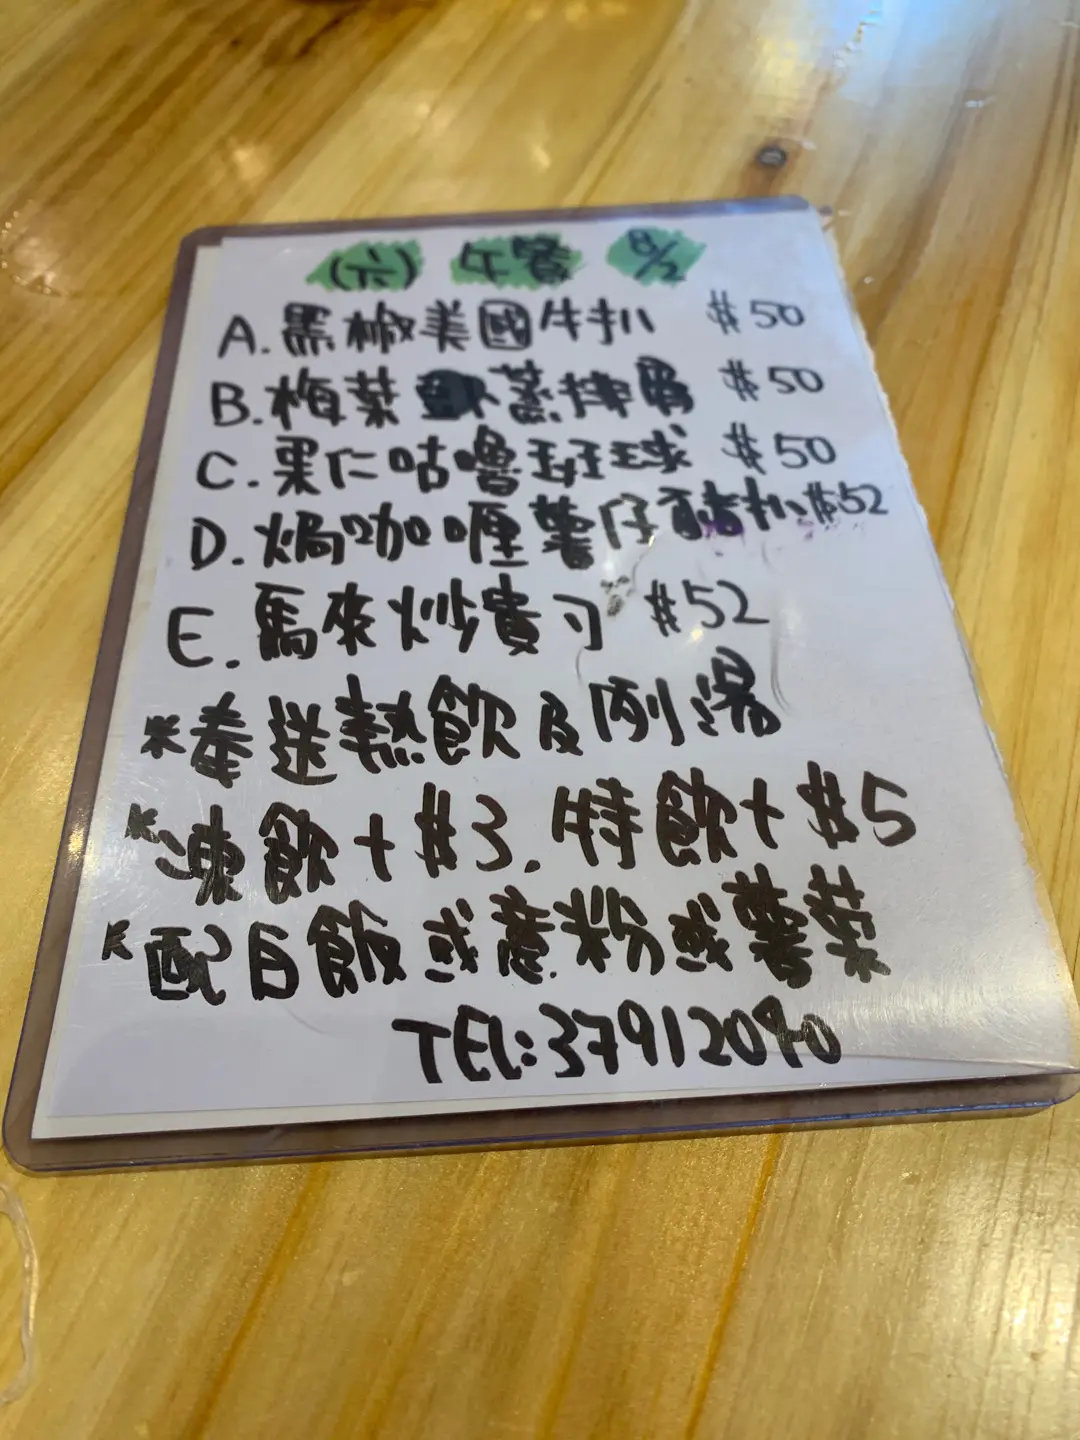 (六) 午餐 8/2
A. 黑椒美國牛扒 $50
B. 梅菜蒸排骨 $50
C. 果仁咕嚕班球 $50
D. 焗咖喱薯仔豬扒 $52
E. 馬來炒貴刁 $52
*奉送熱飲及例湯
*凍飲+$3. 特飲+$5
*配白飯或意粉或薯菜
TEL: 37912090